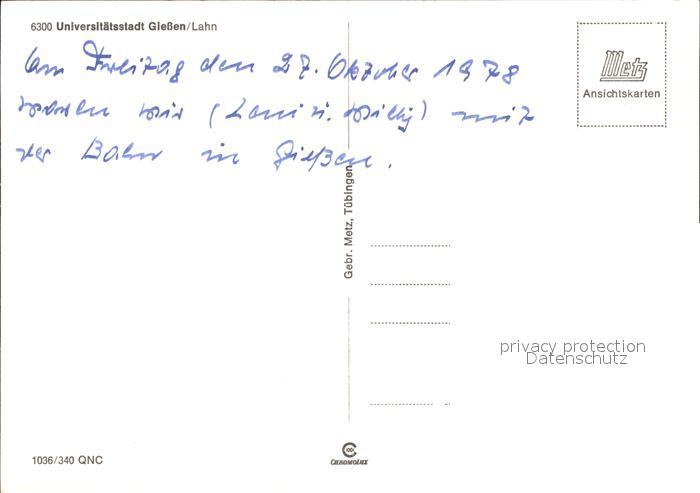 6300 Universitätsstadt Gießen/Lahn
Am Freitag den 27. Oktober 1978
waren wir (Loni u. Willy) mit
der Bahn in Gießen.
Metz
Ansichtskarten
Gebr. Metz, Tübingen
privacy protection
Datenschutz
1036/340 QNC
CHROMOLUX